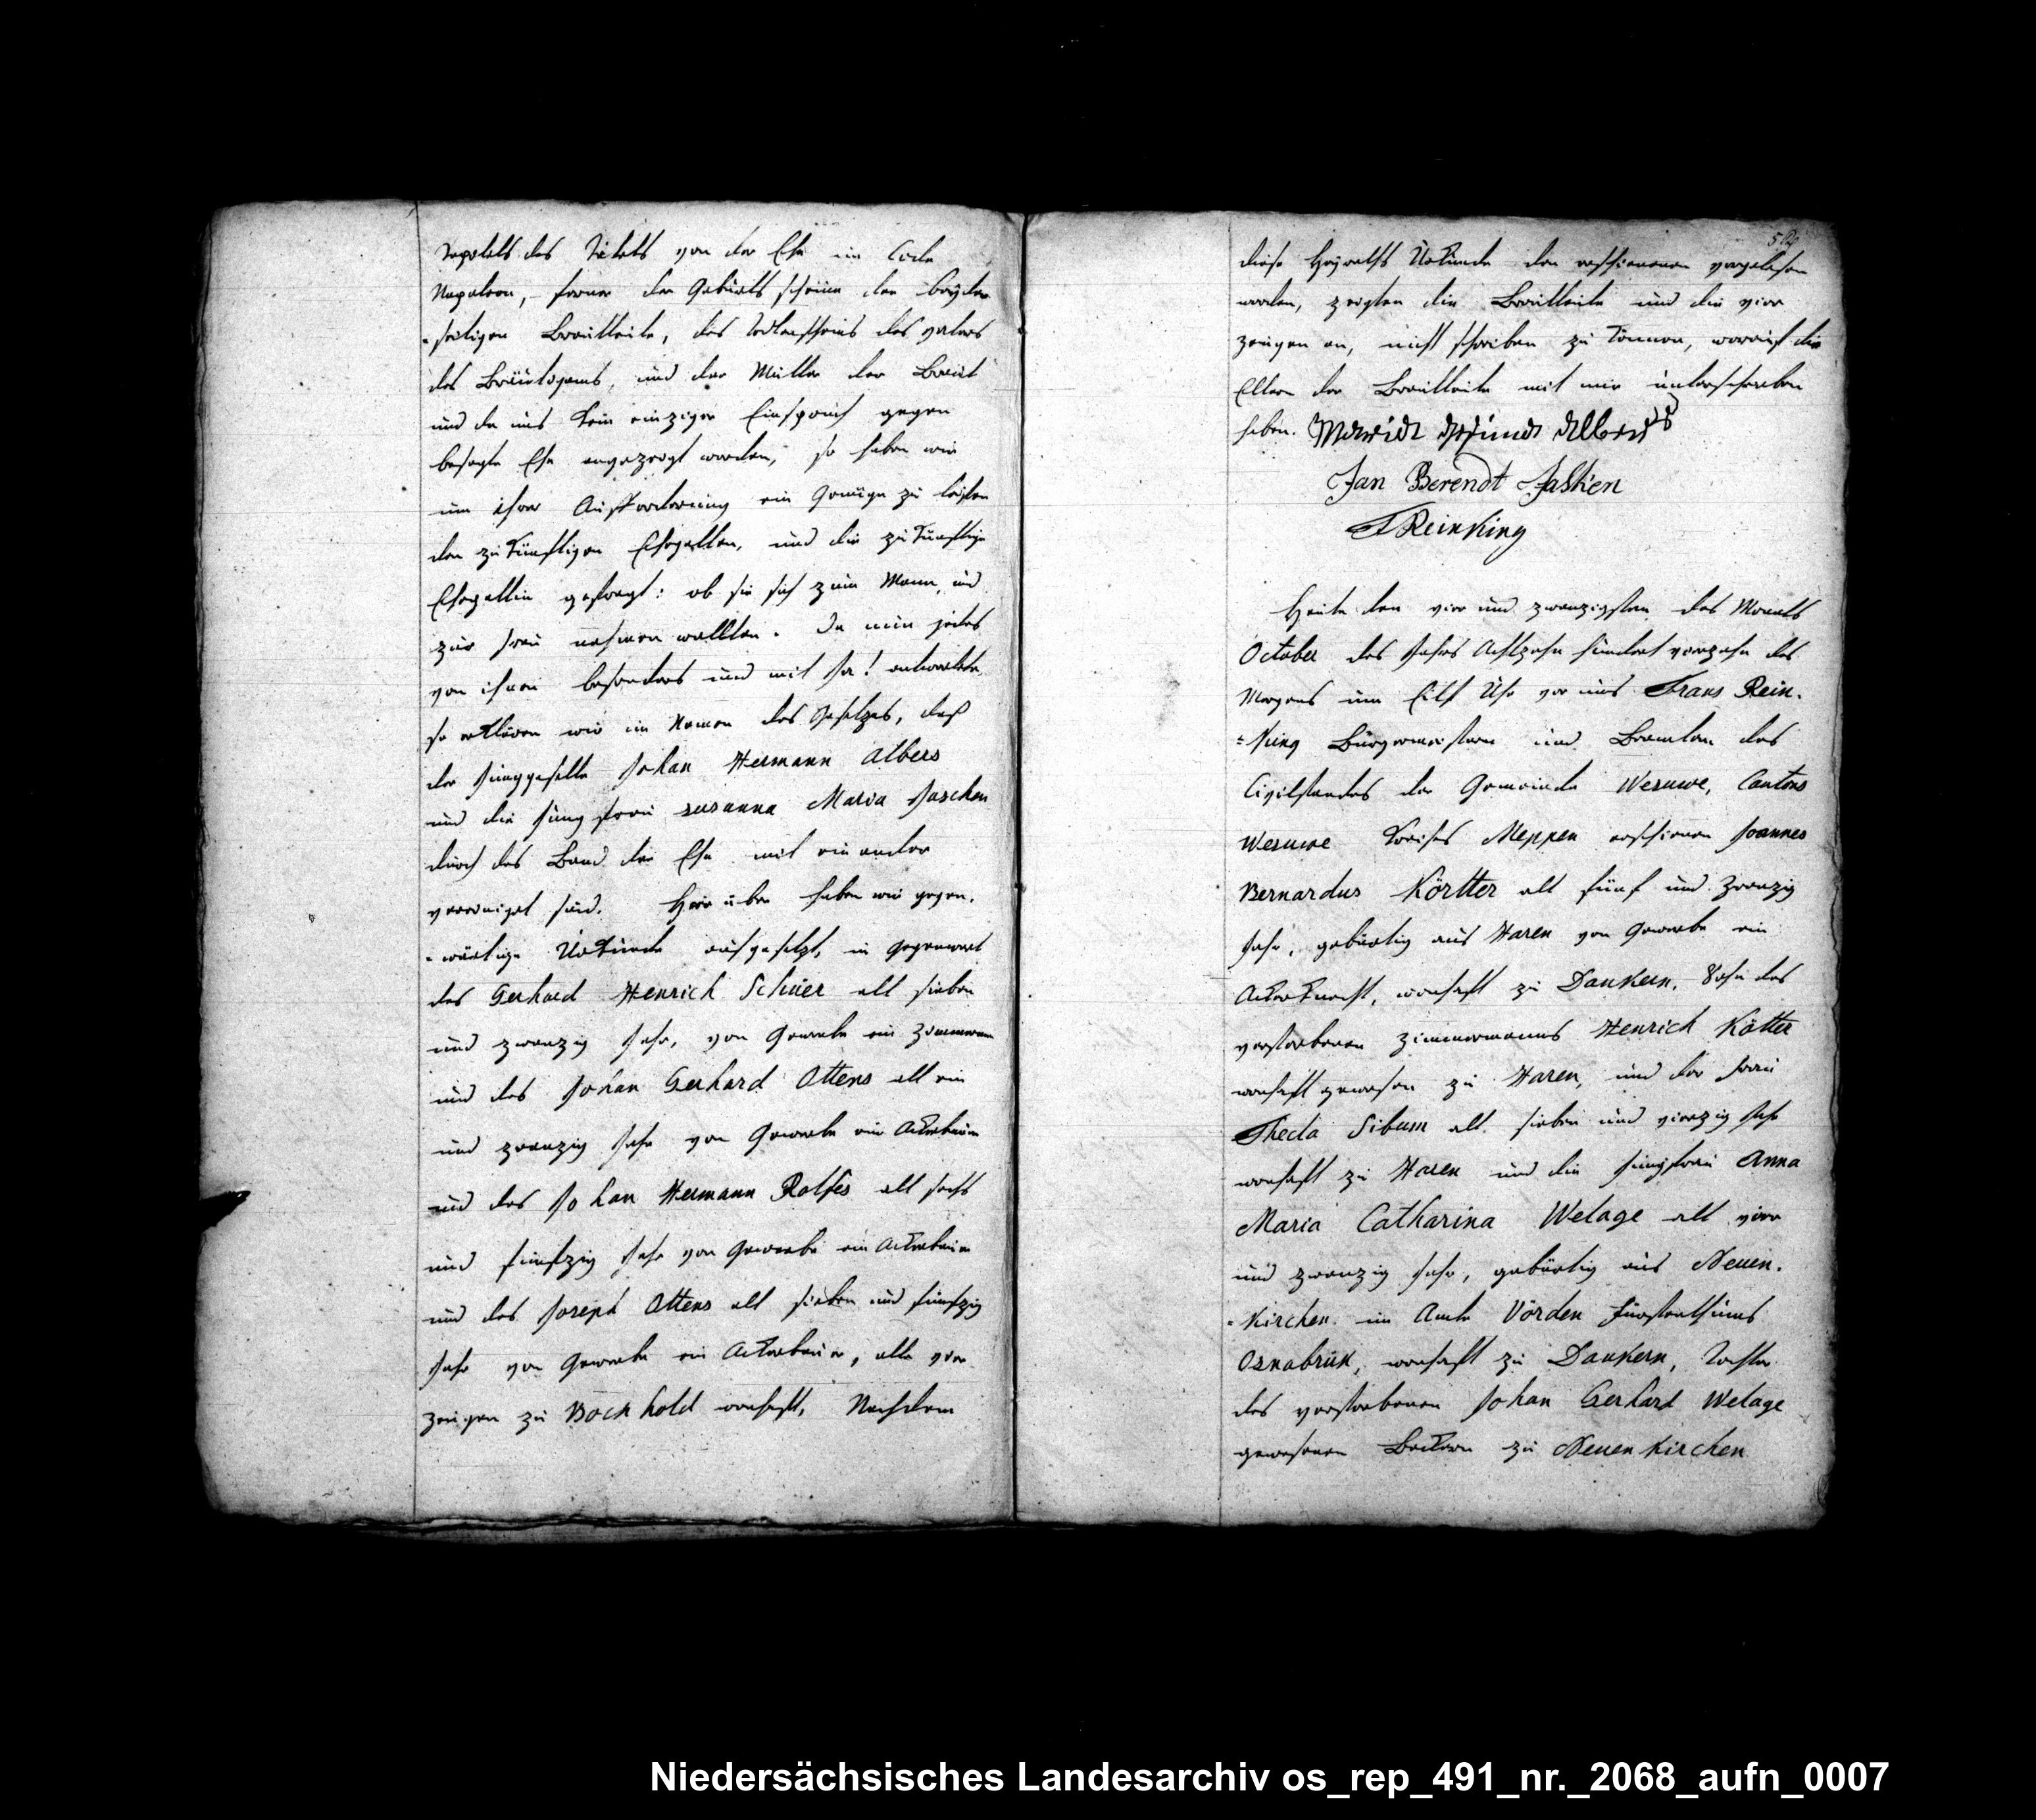 Kapitels des Titels von der Ehe im Code
Napoleon, ferner der Geburtsscheine der beyder
=seitigen Brautleute, des Todtenscheins des Vaters
des Bräutigams, und der Mutter der Braut
und da uns kein einziger Einspruch gegen
besagte Ehe angezeigt worden, so haben wir
um ihrer Aufforderung ein Genüge zu leisten
den zukünftigen Ehegatten, und die zukünftige
Ehegattin gefragt: ob sie sich zum Mann, und
zur Frau nehmen wollten. Da nun jedes
von ihnen besonders und mit Ja! antwortete,
so erklären wir im Namen des Gesetzes, daß
der Junggeselle Johan Hermann Albers
und die Jungfrau Susanna Maria Jaschen
durch das Band der Ehe mit einander
vereiniget sind. Hierüber haben wir gegen=
=wärtige Urkunde aufgesetzt, in Gegenwart
des Gerhard Henrich Schüer alt sieben
und zwanzig Jahr, von Gewerbe ein Zimmermann
und des Johan Gerhard Ottens alt ein
und zwanzig Jahr von Gewerbe ein Ackerbauer
und des Johan Hermann Rolfes alt sechs
und fünfzig Jahr von Gewerbe ein Ackerbauer
und des Joseph Ottens alt sieben und fünfzig
Jahr von Gewerbe ein Ackerbauer, alle vier
Zeugen zu Bockhold wonhaft, Nachdem
diese Heyraths Urkunde den erschienenen vorgelesen
worden, zeigten die Brautleute und die vier
Zeugen an, nicht schreiben zu können, worauf die
Eltern der Brautleute mit mir unterschrieben
haben. Albers
Jan Berendt Jasken
FReinking
Heute den vier und zwanzigsten des Monats
October des Jahrs Achtzehn hundert vierzehn des
Morgens um Eilf Uhr vor uns Frans Rein=
=king Bürgermeistern und Beamten des
Civilstandes der Gemeinde Wesuwe, Cantons
Wesuwe Kreises Meppen erschienen Joannes
Bernardus Körtter alt fünf und zwanzig
Jahr, gebürtig aus Haren von Gewerbe ein
Ackerknecht, wonhaft zu Dankern, Sohn des
verstorbenen Zimmermanns Henrich Kötter
wonhaft gewesen zu Haren, und der Frau
Thecla Sibum alt sieben und vierzig Jahr
wonhaft zu Haren und die Jungfrau Anna
Maria Catharina Welage alt vier
und zwanzig Jahr, gebürtig aus Neuen=
=kirchen im Amte Vörden Fürstenthums
Osnabrük, wonhaft zu Dankern, Tochter
des verstorbenen Johan Gerhard Welage
gewesenen Beckern zu Neuenkirchen
Niedersächsisches Landesarchiv os_rep_491_nr._2068_aufn_0007